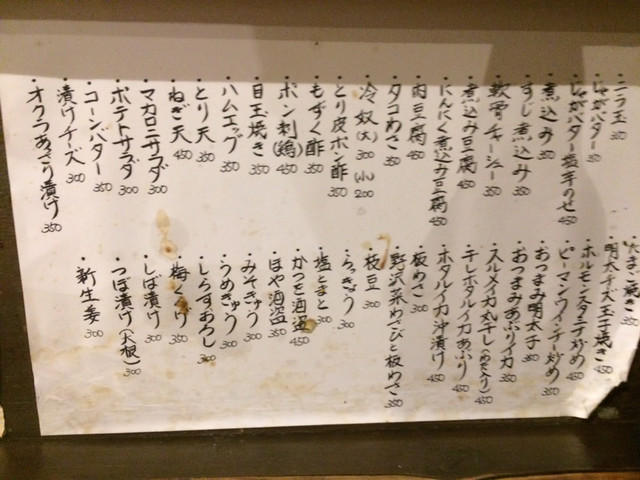 ・ニラ玉 350
・じゃがバター 350
・じゃがバター塩辛のせ 450
・煮込み 350
・すじ煮込み 350
・軟骨チャーシュー 350
・煮込み豆腐 450
・にんにく煮込み豆腐 450
・肉豆腐 450
・タコわさ 350
・冷奴(大)300(小)200
・とり皮ポン酢 350
・もずく酢 350
・ポン刺(鶏) 450
・目玉焼き 350
・ハムエッグ 350
・とり天 350
・ねぎ天 450
・マカロニサラダ 300
・ポテトサラダ 300
・コーンバター 350
・漬けチーズ 300
・オクラあさり漬け 350
たまご焼き 350
明太子大玉子焼き 450
・ホルモンスタミナ炒め 450
・ピーマンウインナー炒め 350
・おつまみ明太子 350
・おつまみあぶりイカ 350
・スルメイカ丸干し(わた入り) 450
・干しホタルイカあぶり 450
・ホタルイカ沖漬け 450
・板わさ 300
・野沢菜わさびと板わさ 350
・枝豆 300
・らっきょう 300
・塩とまと 300
・かつを酒盗 450
・ほや酒盗 350
・みそきゅう 300
・うめきゅう 300
・しらすおろし 300
・梅くらげ 350
・しば漬け 300
・つぼ漬け(大根) 300
・新生姜 300